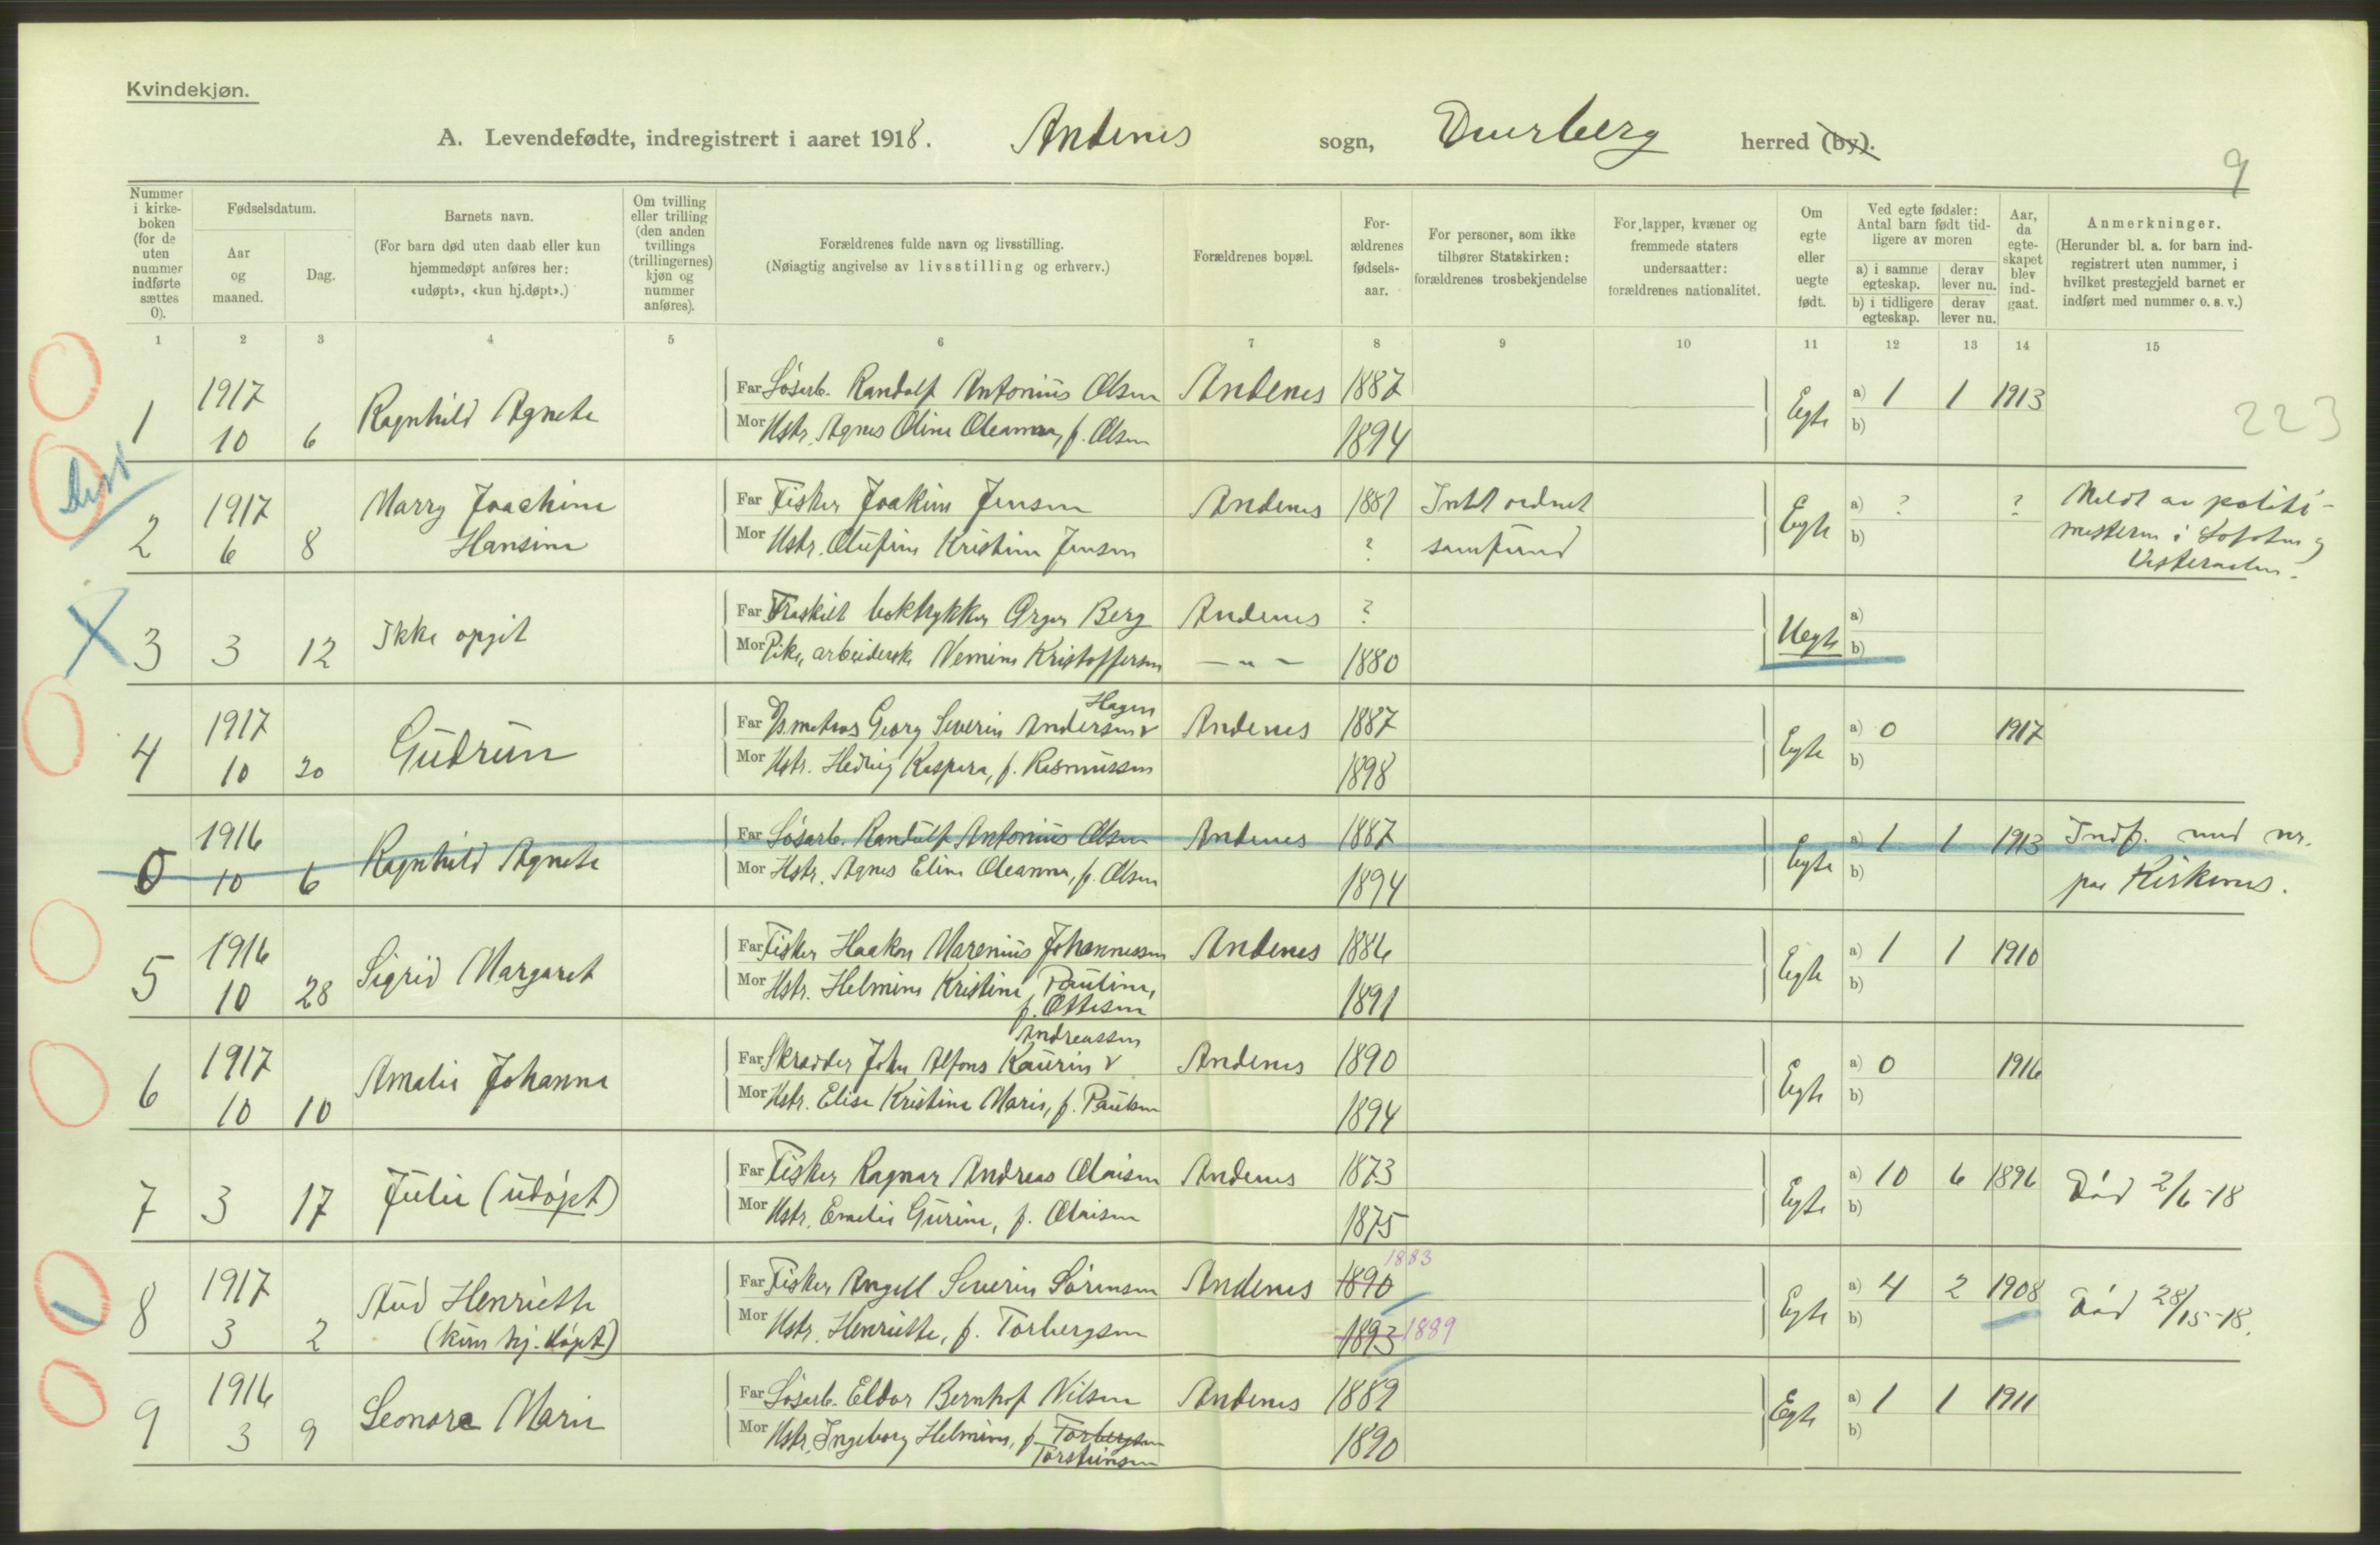 Kvindekjøn.
A. Levendefødte, indregistrert i aaret 1918. Andenes sogn, Dverberg herred (by).
9
Nummer i kirke-boken (for de uten nummer indførte sættes 0).
Fødselsdatum.
Aar og maaned.
Dag.
Barnets navn.
(For barn død uten daab eller kun hjemmedøpt anføres her: «udøpt», «kun hj.døpt».)
Om tvilling eller trilling (den anden tvillings (trillingernes) kjøn og nummer anføres).
Forældrenes fulde navn og livsstilling.
(Nøiagtig angivelse av livsstilling og erhverv.)
Forældrenes bopæl.
For-ældrenes fødsels-aar.
For personer, som ikke tilhører Statskirken: forældrenes trosbekjendelse
For lapper, kvæner og fremmede staters undersaatter: forældrenes nationalitet.
Om egte eller uegte født.
Ved egte fødsler: Antal barn født tid-ligere av moren
a) i samme egteskap. derav lever nu.
b) i tidligere egteskap. derav lever nu.
Aar, da egte-skapet blev ind-gaat.
Anmerkninger.
(Herunder bl. a. for barn ind-registrert uten nummer, i hvilket prestegjeld barnet er indført med nummer o. s. v.)
1 2 3 4 5 6 7 8 9 10 11 12 13 14 15
1917 Far Løsarb. Randolf Antonius Olsen Andenes 1887 a) 1 1 1913
1 10 6 Ragnhild Agnete Mor Hstr. Agnes Oline Oleanna, f. Olsen 1894 Egte b)
223
1917 Marry Joachime Far Fisker Joakim Jensen Andenes 1881 Intet ordnet a) ? ? Meldt av politi-
2 6 8 Hansine Mor Hstr. Olufine Kristine Jensen ? samfund Egte b) mesteren i Lofoten og
Vesteraalen.
Far Fraskilt boktrykker Berg Andenes ? a)
3 3 12 Ikke opgit Mor Pike, arbeiderske Kristoffersen — " — 1880 Uegte b)
Hagen
1917 Far Georg Severin Andersen Andenes 1887 a) 0 1917
4 10 20 Gudrun Mor Hstr. Hedvig Kaspara, f. Rasmussen 1898 Egte b)
1916 Far Løsarb. Randulf Antonius Olsen Andenes 1887 a) 1 1 1913 Indf. med nr.
0 10 6 Ragnhild Agnete Mor Hstr. Agnes Eline Oleanna, f. Olsen 1894 Egte b) paa Kirkenes.
1916 Far Fisker Haakon Marenius Johannessen Andenes 1886 a) 1 1 1910
5 10 28 Sigrid Margaret Mor Hstr. Helmine Kristine Pauline, 1891 Egte b)
f. Ottesen
Andreassen
1917 Far Skrædder John Alfons Kaurin Andenes 1890 a) 0 1916
6 10 10 Amalie Johanne Mor Hstr. Elise Kristine Marie, f. Paulsen 1894 Egte b)
Far Fisker Ragnar Andreas Olaisen Andenes 1873 a) 10 6 1896
7 3 17 Julie (udøpt) Mor Hstr. Emelie Gurine, f. Olaisen 1875 Egte b) Død 2/6-18
1883
1917 Far Fisker Angell Severin Sørensen Andenes 1890 a) 4 2 1908
8 3 2 Aud Henriette Mor Hstr. Henriette, f. Torbergsen 1893 1889 Egte b) Død 28/15-18.
(kun hj. døpt)
1916 Far Løsarb. Eldor Bernhof Nilsen Andenes 1889 a) 1 1 1911
9 3 9 Leonore Marie Mor Hstr. Ingeborg Helmine, f. Torbergsen 1890 Egte b)
Torsteinsen